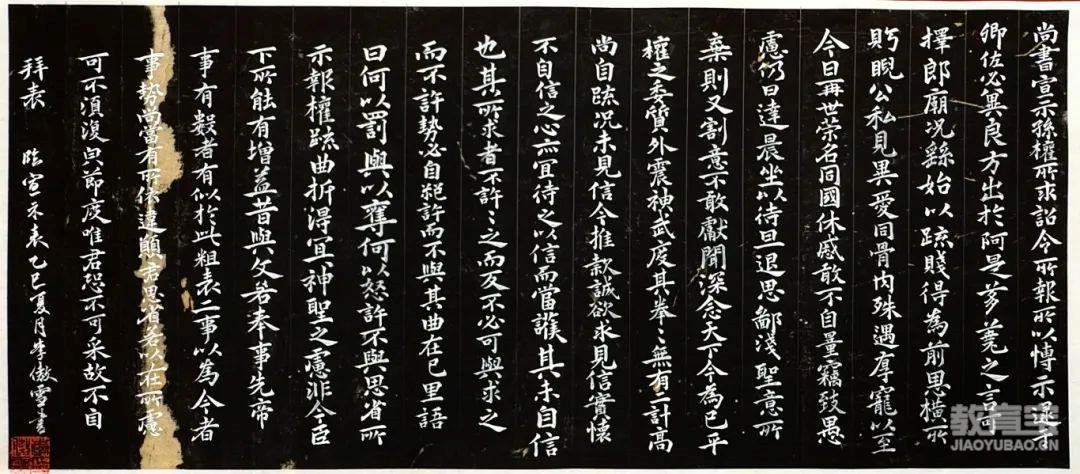 尚書宣示孫權所求詔令所報所以博示逮于
卿佐必冀良方出於阿是芻蕘之言可
擇郎廟況繇始以疏賤得為前思橫所
眄睨公私見異愛同骨肉殊遇厚寵以至
今日再世榮名同國休慼敢不自量竊致愚
慮仍日達晨坐以待旦退思鄙淺聖意所
棄則又割意不敢獻聞深念天下今為已平
權之委質外震神武度其拳〻無有二計高
尚自疏況未見信今推款誠欲求見信實懷
不自信之心亦宜待之以信而當護其未自信
也其所求者不許〻之而反不必可與求之
而不許勢必自絕許而不與其曲在已里語
曰何以罰與以奪何以怒許不與思省所
示報權疏曲折得宜神聖之慮非今臣
下所能有增益昔與文若奉事先帝
事有數者有似於此粗表二事以為今者
事勢尚當有所依違願君思省若以在所慮
可不須復㒷節度唯君恐不可采故不自
拜表 臨宣示表乙巳夏月李傲雪書
教育宝
JIAOYUBAO.CN